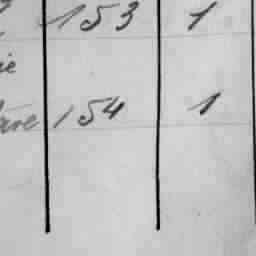 153 1
ie
154 1